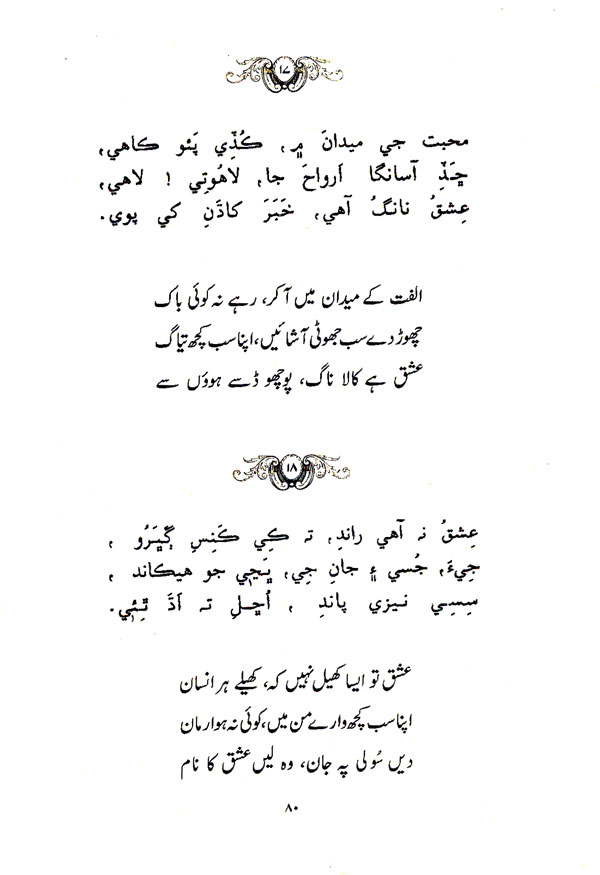 ۱۷
محبت جي ميدانَ ۾، ڪُڏِي پَئو ڪاهي،
ڇَڏِ آسانگا اَرواحَ جا، لاهُوتِي ! لاهي،
عِشقُ نانگُ آهي، خَبَرَ کاڌَنِ کي پوي.
الفت کے میدان میں آ کر، رہے نہ کوئی باک
چھوڑ دے سب جھوٹی آشائیں، اپنا سب کچھ تیاگ
عشق ہے کالا ناگ، پوچھو ڈسے ہوؤں سے
۱۸
عِشقُ نہ آهي راندِ، تہ ڪِي ڪَنِسِ ڳڀَرُو ،
جِيءَ، جُسي ۽ جانِ جِي، ڀَڃي جو هيڪاند ،
سِسِي نيزي پاندِ ، اُڇلِ تہ اَڌَ ٿِئي.
عشق تو ایسا کھیل نہیں کہ، کھیلے ہر انسان
اپنا سب کچھ وارے من میں، کوئی نہ ہو ارمان
دیں سُولی پہ جان، وہ لیں عشق کا نام
۸۰